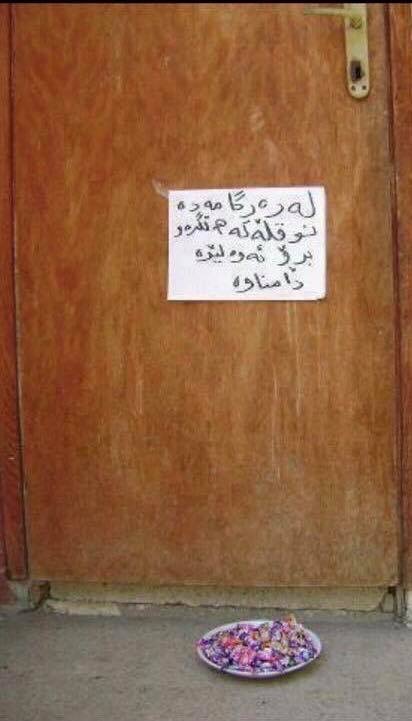 لە دەرگا مەدە
نوقڵەکە هەڵگرەو
بڕۆ ئەوە لێرە
دامناوە